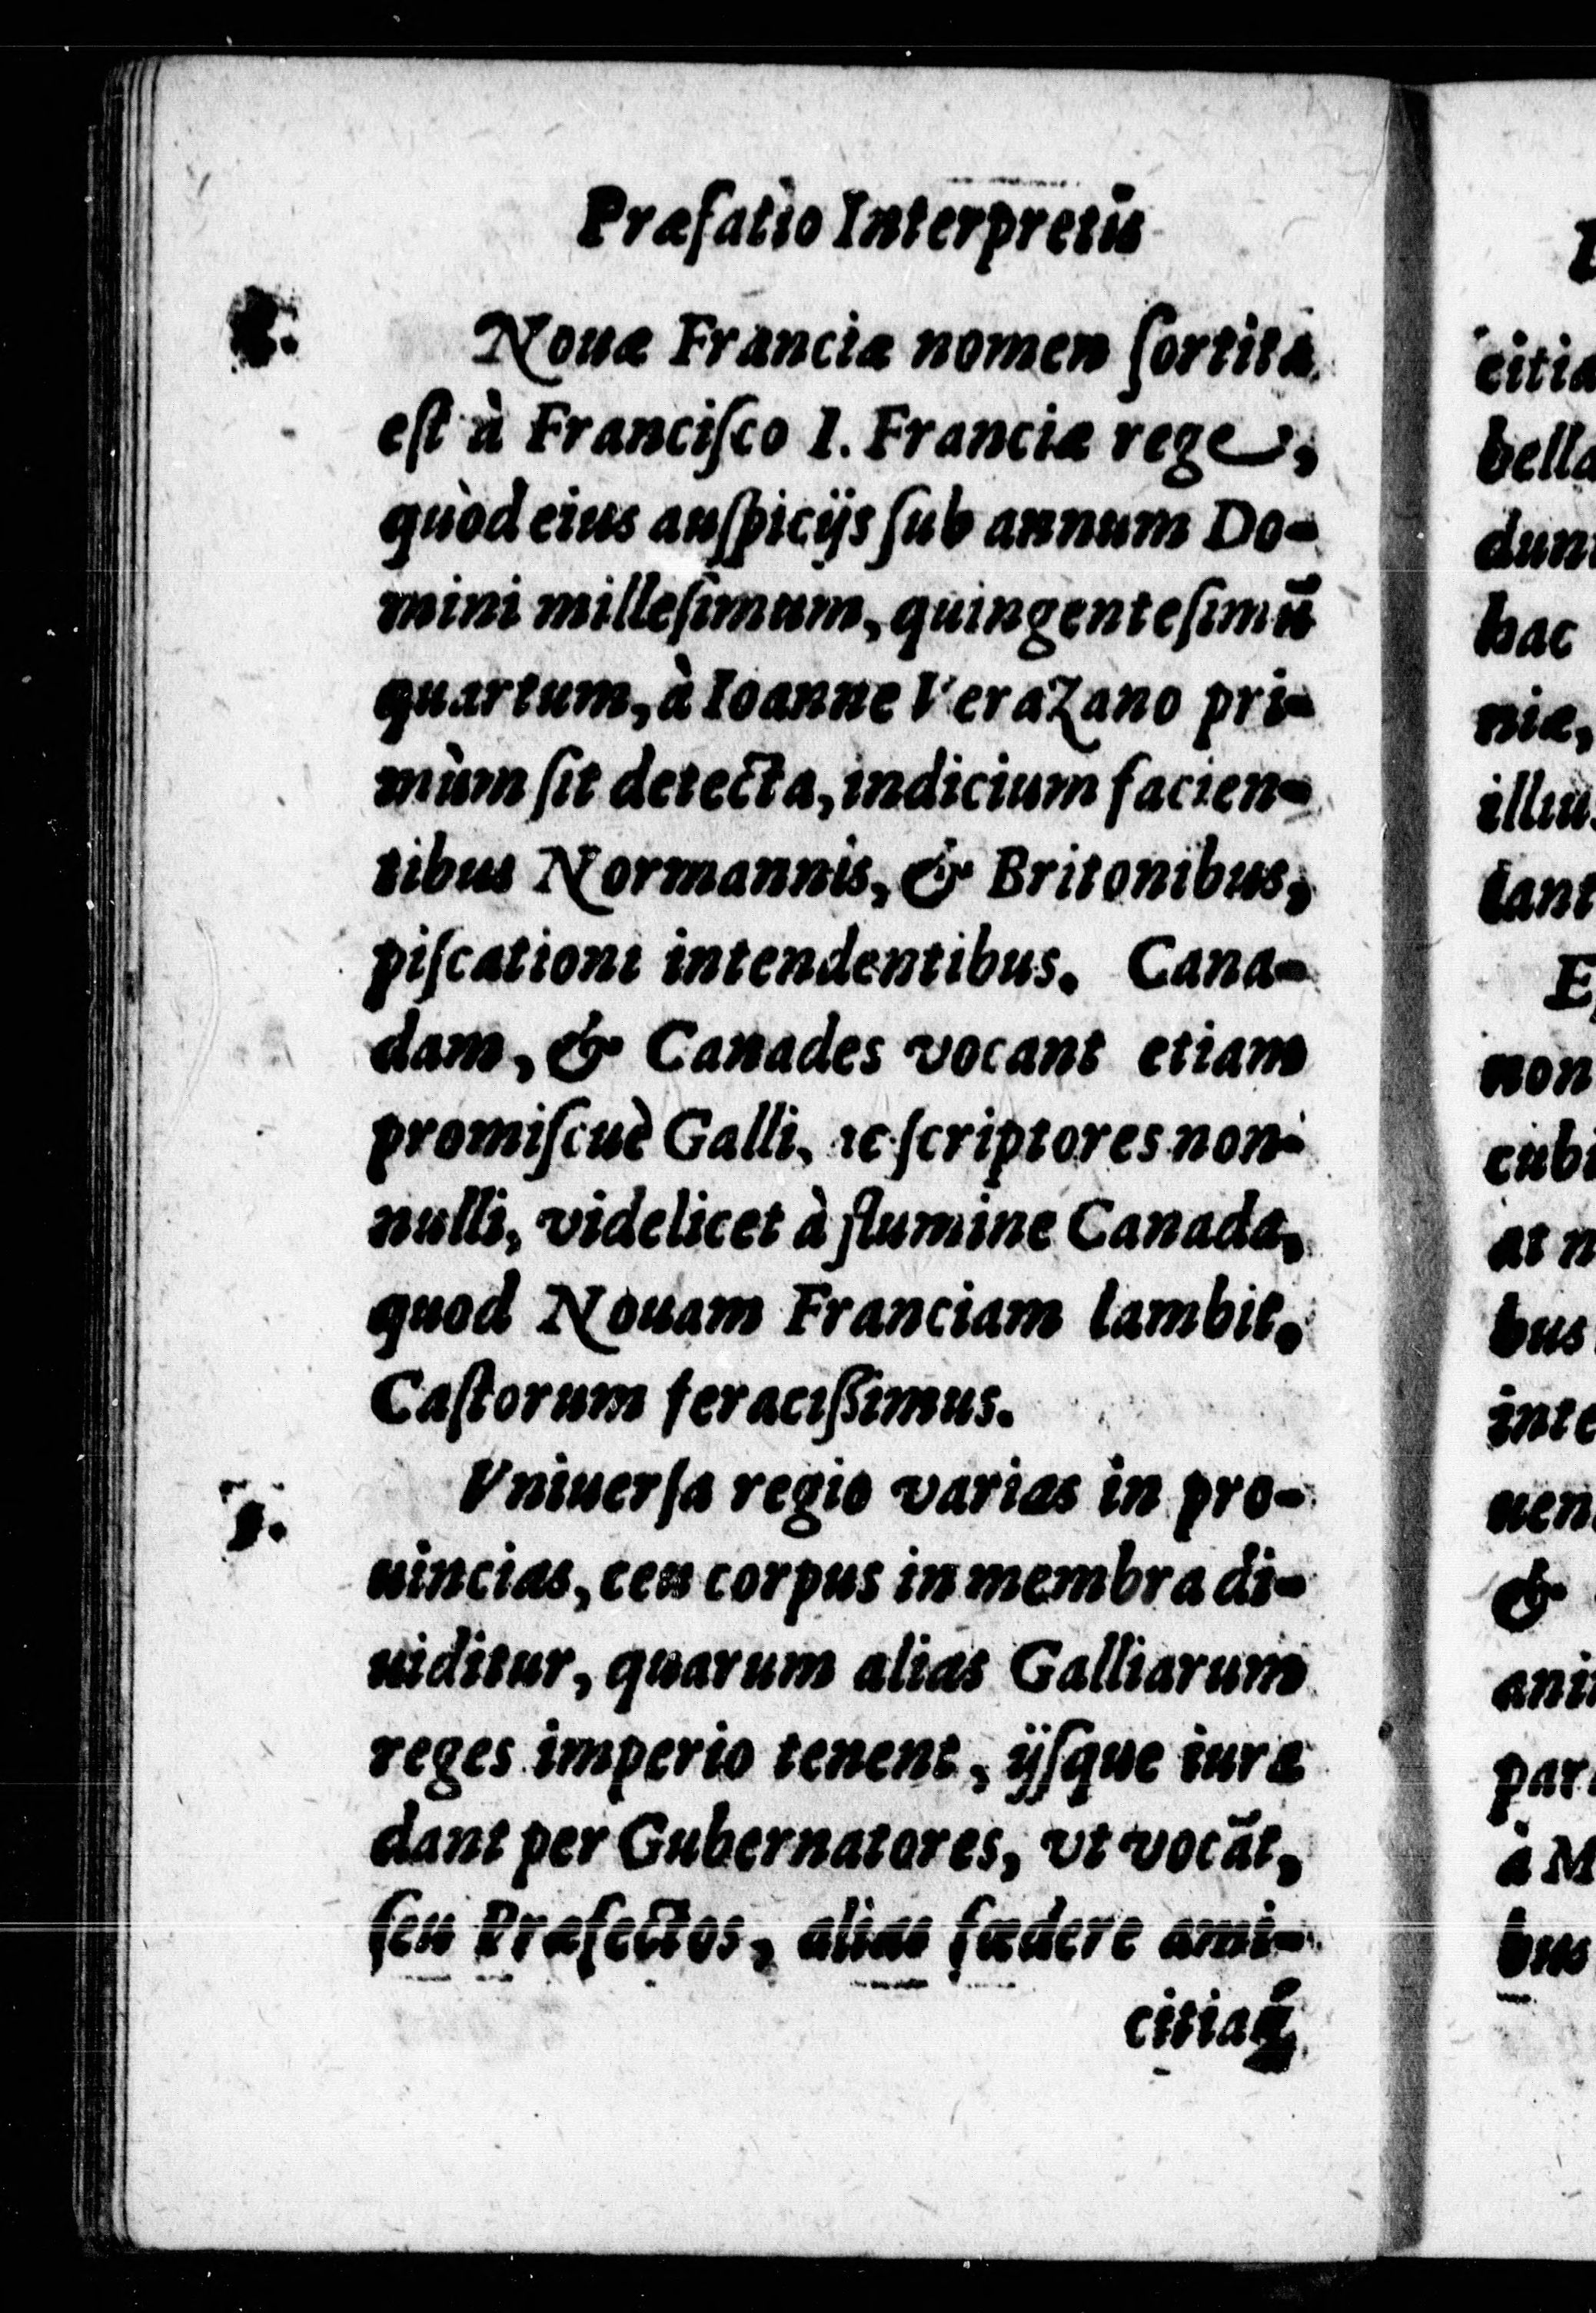 Præfatio Interpretis
Nouæ Franciæ nomen ſortita
eſt à Franciſco I. Franciæ rege,
quòd eius auſpicijs ſub annum Do-
mini milleſimum, quingenteſimū
quartum, à Ioanne Verazano pri-
mùm ſit detecta, indicium facien-
tibus Normannis, & Britonibus,
piſcationi intendentibus. Cana-
dam, & Canades vocant etiam
promiſcuè Galli, ac ſcriptores non-
nulli, videlicet à flumine Canada,
quod Nouam Franciam lambit,
Caſtorum feraciſſimus.
Vniuerſa regio varias in pro-
uincias, ceu corpus in membra di-
uiditur, quarum alias Galliarum
reges imperio tenent, ijſque iura
dant per Gubernatores, vt vocāt,
ſeu Præfectos, alias fœdere ami-
citiaq́;
citia
bella
dun
hac
niæ,
illius
tant
E
non
cubi
at n
bus
inte
uen
&
ani
par
à M
bus